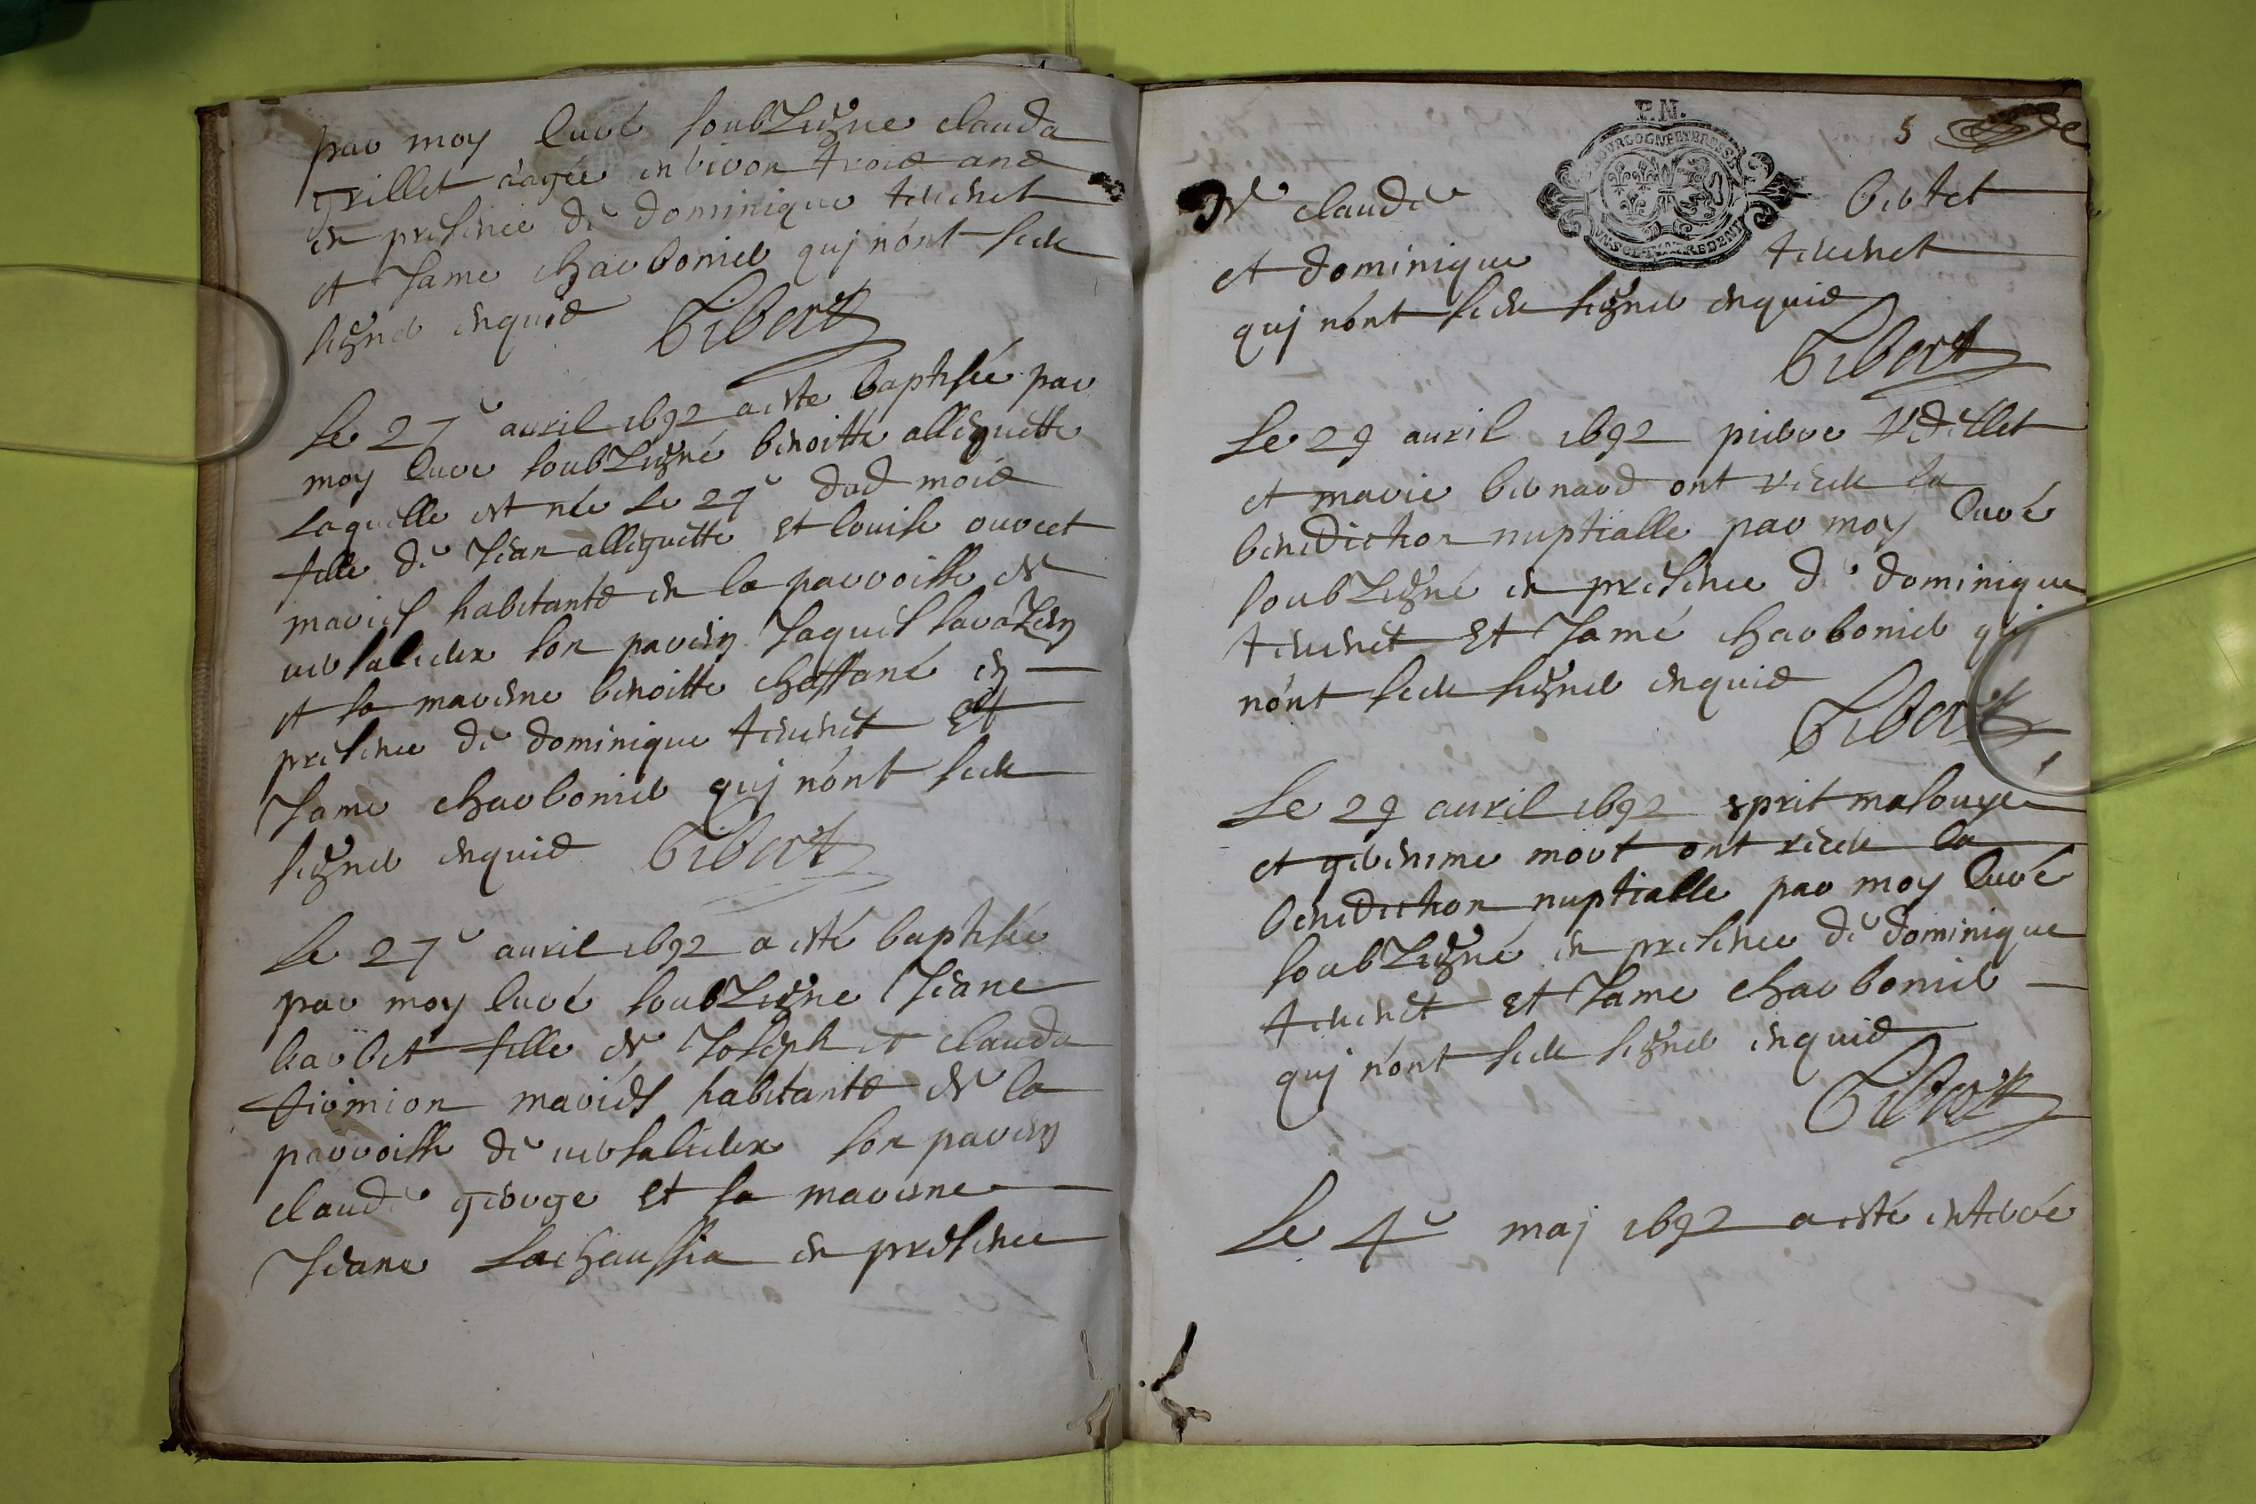 par moy Curé soubzsigne clauda
grillet aagée environ trois ans
en presence de dominique tevenet
et Jame charbonier qui n'ont sceu
signer enquis Gibert
Le 27e auril 1692 a este baptisée par
moy Cure soubzsigné benoitte alleguette
Laquelle est née Le 27e dud mois
fille de Jean alleguette et louise ouvret
mariés habitants en la parroisse de
versalieu son parein Jaques
et sa mareine benoitte chaffané en
presence de dominique tevenet et
Jame charbonier qui n'ont sceu
signer enquis Gibert
Le 27e auril 1692 a esté baptisée
par moy Curé soubzsigne Jeane
barbet fille de Joseph et clauda
mariés habitants de la
parroisse de versalieu son parein
claude george et sa mareine
Jeane Lachaussia en presence
P.N.
5
de claude bertet
et dominique tevenet
qui n'ont sceu signer enquis
Gibert
Le 29 auril 1692 pierre
et marie bernard ont receu la
benediction nuptialle par moy Curé
soubzsigné en presence de dominique
tevenet et Jame charbonier qui
n'ont sceu signer enquis
Gibert
Le 29 auril 1692 esprit
et gerenime mort ont receu la
benediction nuptialle par moy Curé
soubzsigné en presence de dominique
tevenet et Jame charbonier
qui n'ont sceu signer enquis
Gibert
Le 4e maj 1692 a esté enterré